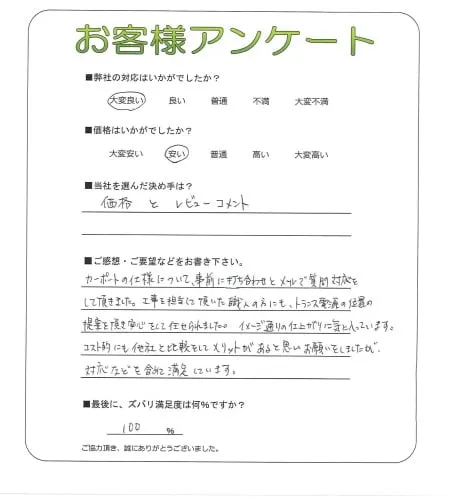 お客様アンケート
■弊社の対応はいかがでしたか？
大変良い 良い 普通 不満 大変不満
■価格はいかがでしたか？
大変安い 安い 普通 高い 大変高い
■当社を選んだ決め手は？
価格 と レビューコメント
■ご感想・ご要望などをお書き下さい。
カーポートの仕様について、事前に打ち合わせとメールで質問対応を
して頂きました。工事を担当して頂いた職人の方にも、トランス電源の位置の
提案を頂き安心をして任せられました。 イメージ通りの仕上がりに気に入っています。
コスト的にも他社と比較をしてメリットがあると思いお願いをしましたが、
対応なども含めて満足しています。
■最後に、ズバリ満足度は何％ですか？
100 ％
ご協力頂き、誠にありがとうございました。